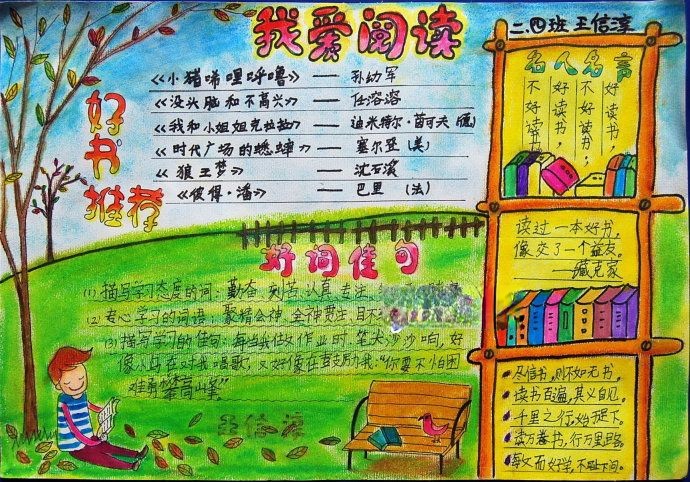 我爱阅读
二.四班 王信淳
好书推荐
《小猪唏哩呼噜》 —— 孙幼军
《没头脑和不高兴》 —— 任溶溶
《我和小姐姐克拉拉》 —— 迪米特尔·茵可夫（德）
《时代广场的蟋蟀》 —— 塞尔登（美）
《狼王梦》 —— 沈石溪
《彼得·潘》 —— 巴里 （法）
好词佳句
(1) 描写学习态度的词：勤奋、刻苦、认真、专注、
(2) 专心学习的词语：聚精会神、全神贯注、目不
(3) 描写学习的佳句：每当我做作业时，笔尖沙沙响，好
像小鸟在对我唱歌，又好像在鼓励我：“你要不怕困
难勇攀高山峰”
王信淳
名人名言
好读书，
不好读书；
好读书，
不好读书。
读过一本好书，
像交了一个益友。
——臧克家
尽信书，则不如无书。
读书百遍，其义自见。
千里之行，始于足下。
读万卷书，行万里路
敏而好学，不耻下问。